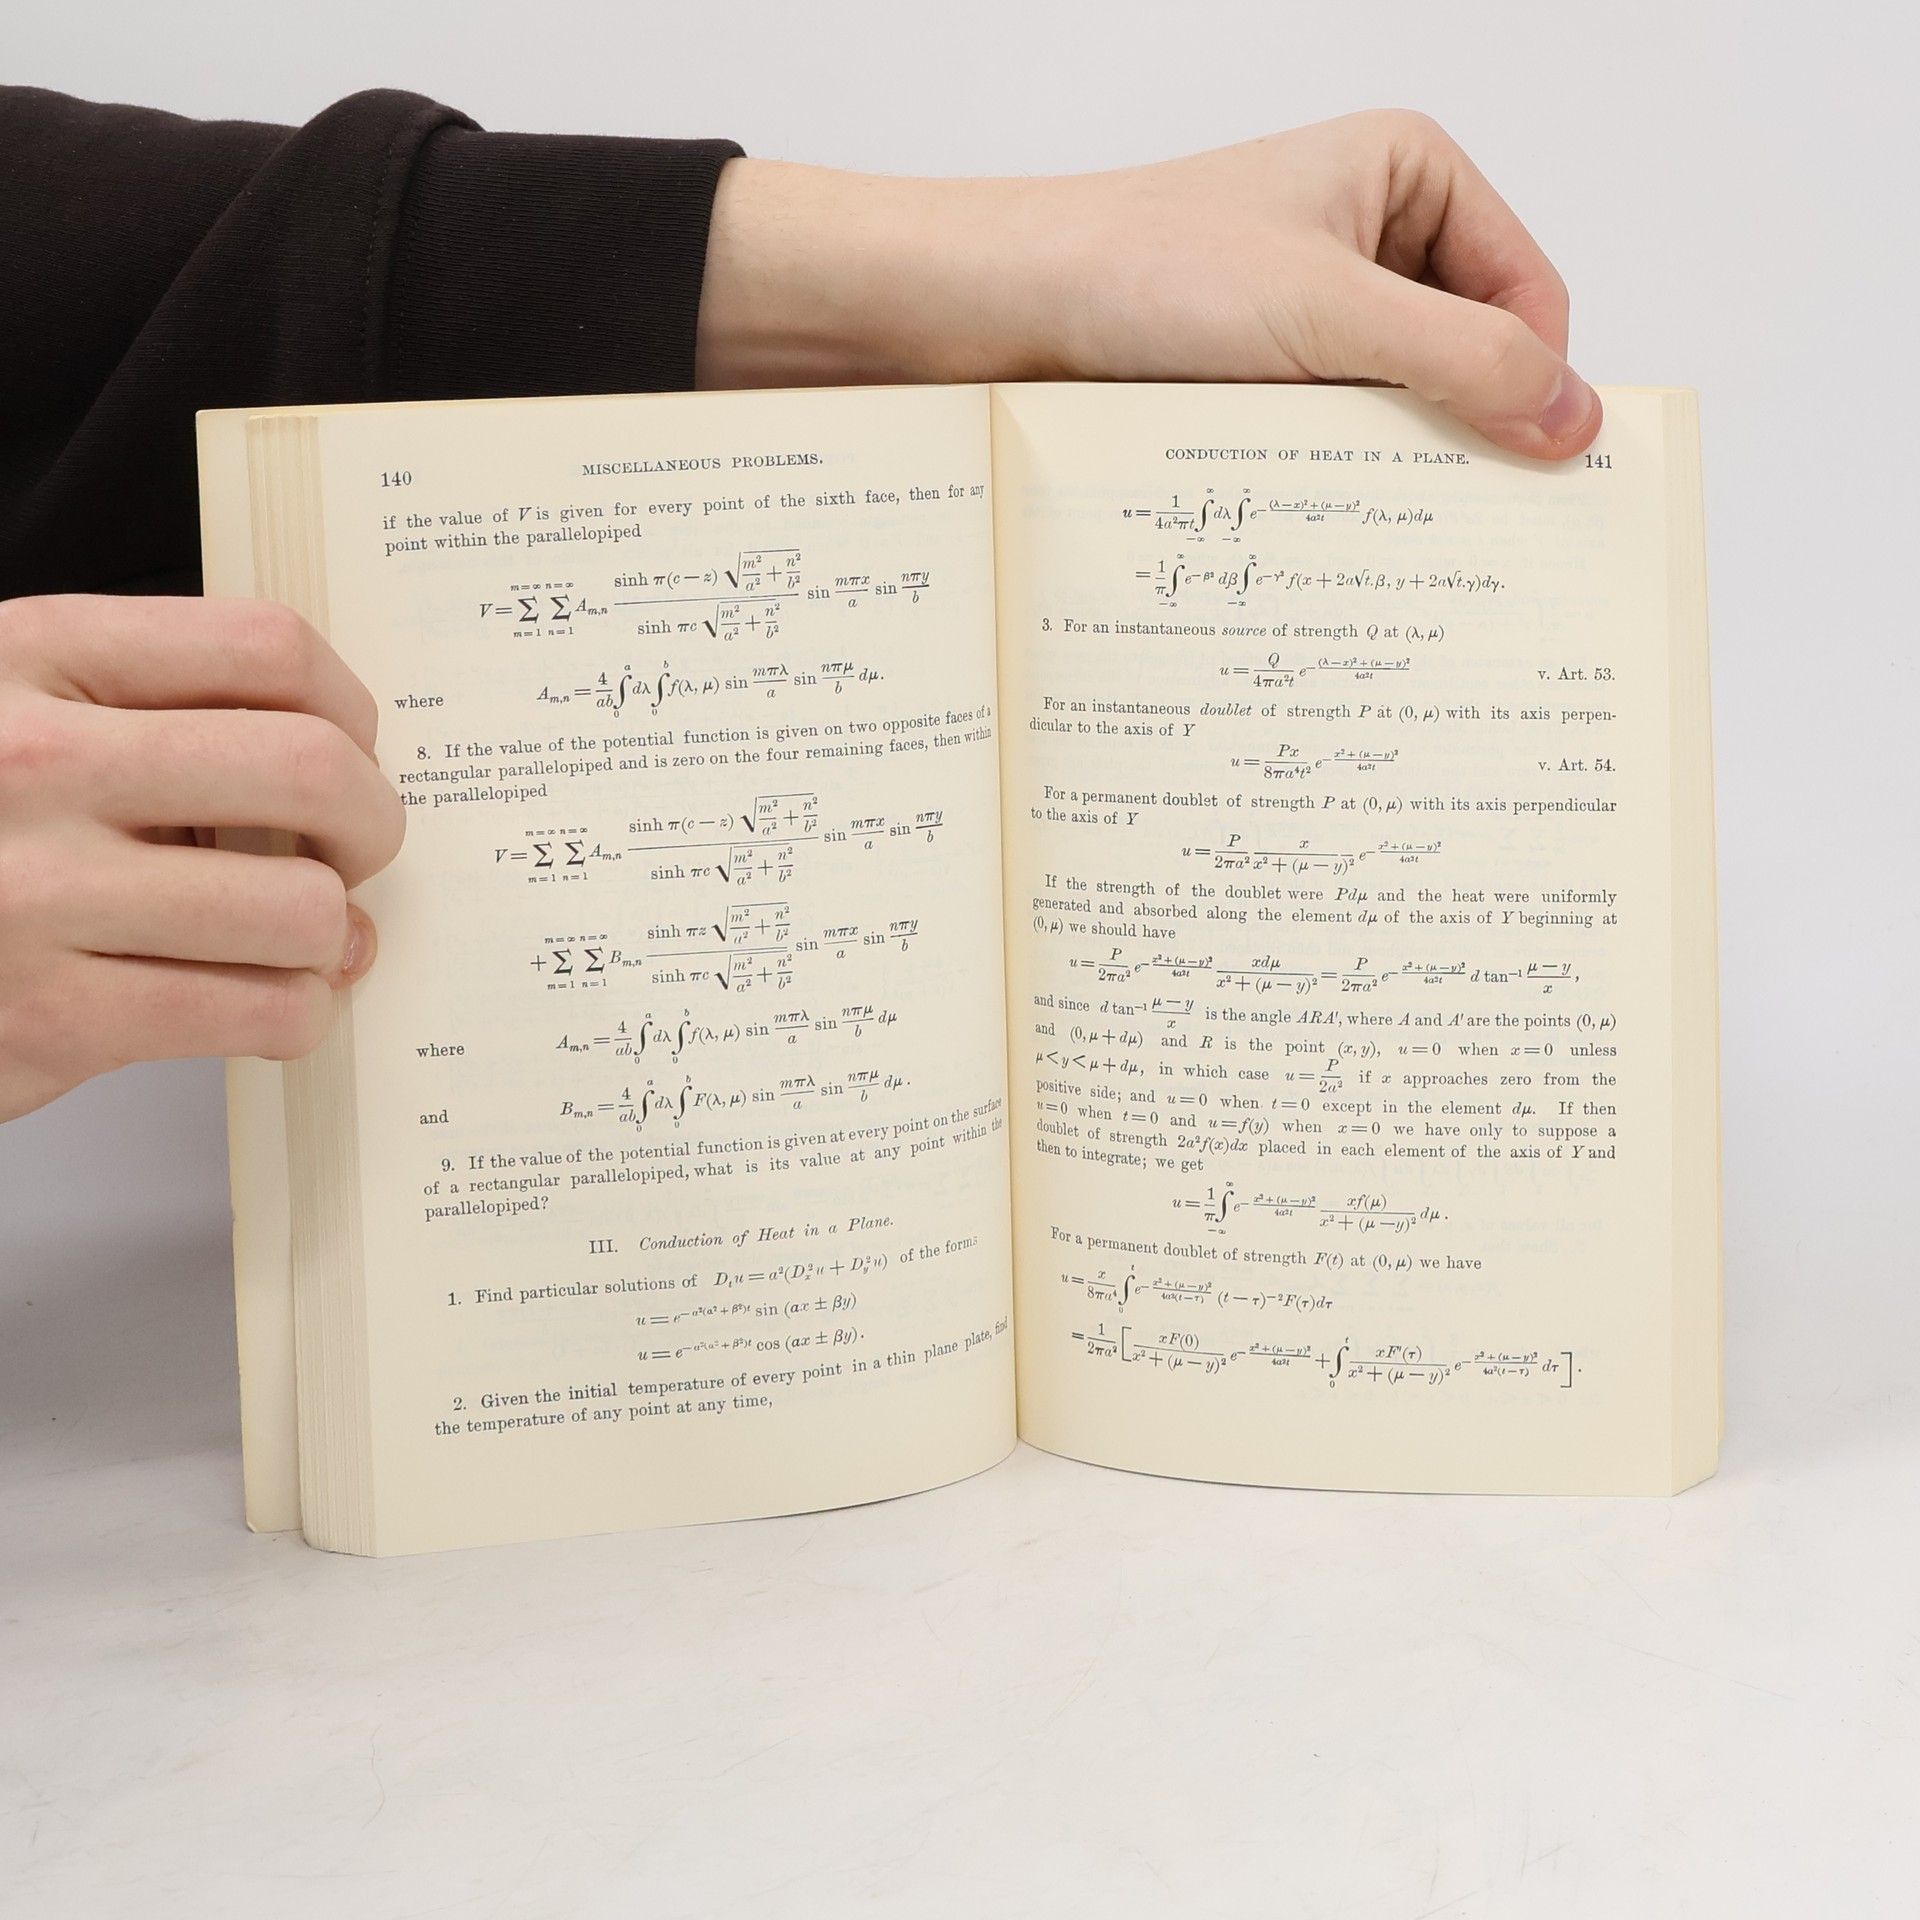 140 MISCELLANEOUS PROBLEMS.
if the value of V is given for every point of the sixth face, then for any
point within the parallelopiped
V = \sum_{m=1}^{m=∞} \sum_{n=1}^{n=∞} A_{m,n} \frac{\sinh π(c − z) \sqrt{\frac{m²}{a²} + \frac{n²}{b²}}}{\sinh πc \sqrt{\frac{m²}{a²} + \frac{n²}{b²}}} \sin \frac{mπx}{a} \sin \frac{nπy}{b}
where A_{m,n} = \frac{4}{ab} \int_0^a dλ \int_0^b f(λ, μ) \sin \frac{mπλ}{a} \sin \frac{nπμ}{b} dμ.
8. If the value of the potential function is given on two opposite faces of a
rectangular parallelopiped and is zero on the four remaining faces, then within
the parallelopiped
V = \sum_{m=1}^{m=∞} \sum_{n=1}^{n=∞} A_{m,n} \frac{\sinh π(c − z) \sqrt{\frac{m²}{a²} + \frac{n²}{b²}}}{\sinh πc \sqrt{\frac{m²}{a²} + \frac{n²}{b²}}} \sin \frac{mπx}{a} \sin \frac{nπy}{b}
+ \sum_{m=1}^{m=∞} \sum_{n=1}^{n=∞} B_{m,n} \frac{\sinh πz \sqrt{\frac{m²}{a²} + \frac{n²}{b²}}}{\sinh πc \sqrt{\frac{m²}{a²} + \frac{n²}{b²}}} \sin \frac{mπx}{a} \sin \frac{nπy}{b}
where A_{m,n} = \frac{4}{ab} \int_0^a dλ \int_0^b f(λ, μ) \sin \frac{mπλ}{a} \sin \frac{nπμ}{b} dμ
and B_{m,n} = \frac{4}{ab} \int_0^a dλ \int_0^b F(λ, μ) \sin \frac{mπλ}{a} \sin \frac{nπμ}{b} dμ.
9. If the value of the potential function is given at every point on the surface
of a rectangular parallelopiped, what is its value at any point within the
parallelopiped?
III. Conduction of Heat in a Plane.
1. Find particular solutions of D_t u = a²(D_x² u + D_y² u) of the forms
u = e^{−a²(α² + β²)t} sin (αx ± βy)
u = e^{−a²(α² + β²)t} cos (αx ± βy).
2. Given the initial temperature of every point in a thin plane plate, find
the temperature of any point at any time,
CONDUCTION OF HEAT IN A PLANE. 141
u = \frac{1}{4a²πt} \int_{−∞}^{∞} dλ \int_{−∞}^{∞} e^{−\frac{(λ−x)² + (μ−y)²}{4a²t}} f(λ, μ)dμ
= \frac{1}{π} \int_{−∞}^{∞} e^{−β²} dβ \int_{−∞}^{∞} e^{−γ²} f(x + 2a√t.β, y + 2a√t.γ)dγ.
3. For an instantaneous source of strength Q at (λ, μ)
u = \frac{Q}{4πa²t} e^{−\frac{(λ−x)² + (μ−y)²}{4a²t}} v. Art. 53.
For an instantaneous doublet of strength P at (0, μ) with its axis perpen-
dicular to the axis of Y
u = \frac{Px}{8πa⁴t²} e^{−\frac{x² + (μ−y)²}{4a²t}} v. Art. 54.
For a permanent doublet of strength P at (0, μ) with its axis perpendicular
to the axis of Y
u = \frac{P}{2πa²} \frac{x}{x² + (μ − y)²} e^{−\frac{x² + (μ−y)²}{4a²t}}
If the strength of the doublet were Pdμ and the heat were uniformly
generated and absorbed along the element dμ of the axis of Y beginning at
(0, μ) we should have
u = \frac{P}{2πa²} e^{−\frac{x² + (μ−y)²}{4a²t}} \frac{xdμ}{x² + (μ − y)²} = \frac{P}{2πa²} e^{−\frac{x² + (μ−y)²}{4a²t}} d tan⁻¹ \frac{μ − y}{x},
and since d tan⁻¹ \frac{μ − y}{x} is the angle ARA′, where A and A′ are the points (0, μ)
and (0, μ + dμ) and R is the point (x, y), u = 0 when x = 0 unless
μ < y < μ + dμ, in which case u = \frac{P}{2a²} if x approaches zero from the
positive side; and u = 0 when t = 0 except in the element dμ. If then
u = 0 when t = 0 and u = f(y) when x = 0 we have only to suppose a
doublet of strength 2a²f(x)dx placed in each element of the axis of Y and
then to integrate; we get
u = \frac{1}{π} \int_{−∞}^{∞} e^{−\frac{x² + (μ−y)²}{4a²t}} \frac{xf(μ)}{x² + (μ − y)²} dμ.
For a permanent doublet of strength F(t) at (0, μ) we have
u = \frac{x}{8πa⁴} \int_0^t e^{−\frac{x² + (μ−y)²}{4a²(t−τ)}} (t − τ)⁻² F(τ)dτ
= \frac{1}{2πa²} [ \frac{xF(0)}{x² + (μ − y)²} e^{−\frac{x² + (μ−y)²}{4a²t}} + \int_0^t \frac{xF′(τ)}{x² + (μ − y)²} e^{−\frac{x² + (μ−y)²}{4a²(t−τ)}} dτ ].